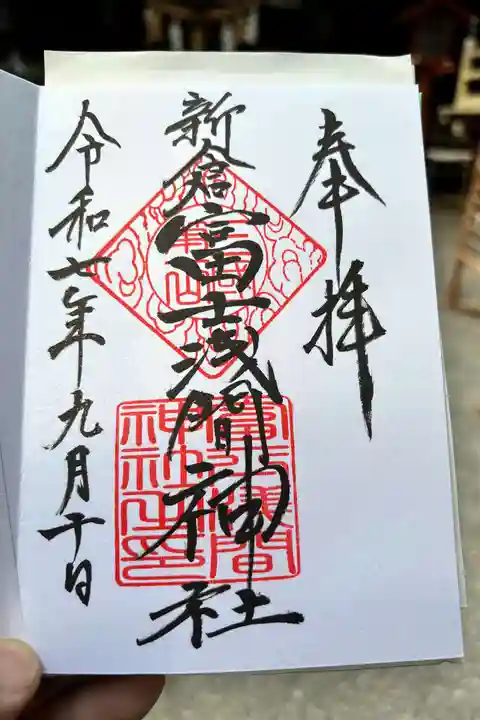 奉拝
新倉富士浅間神社
令和七年九月十日
富士浅間
神社之印